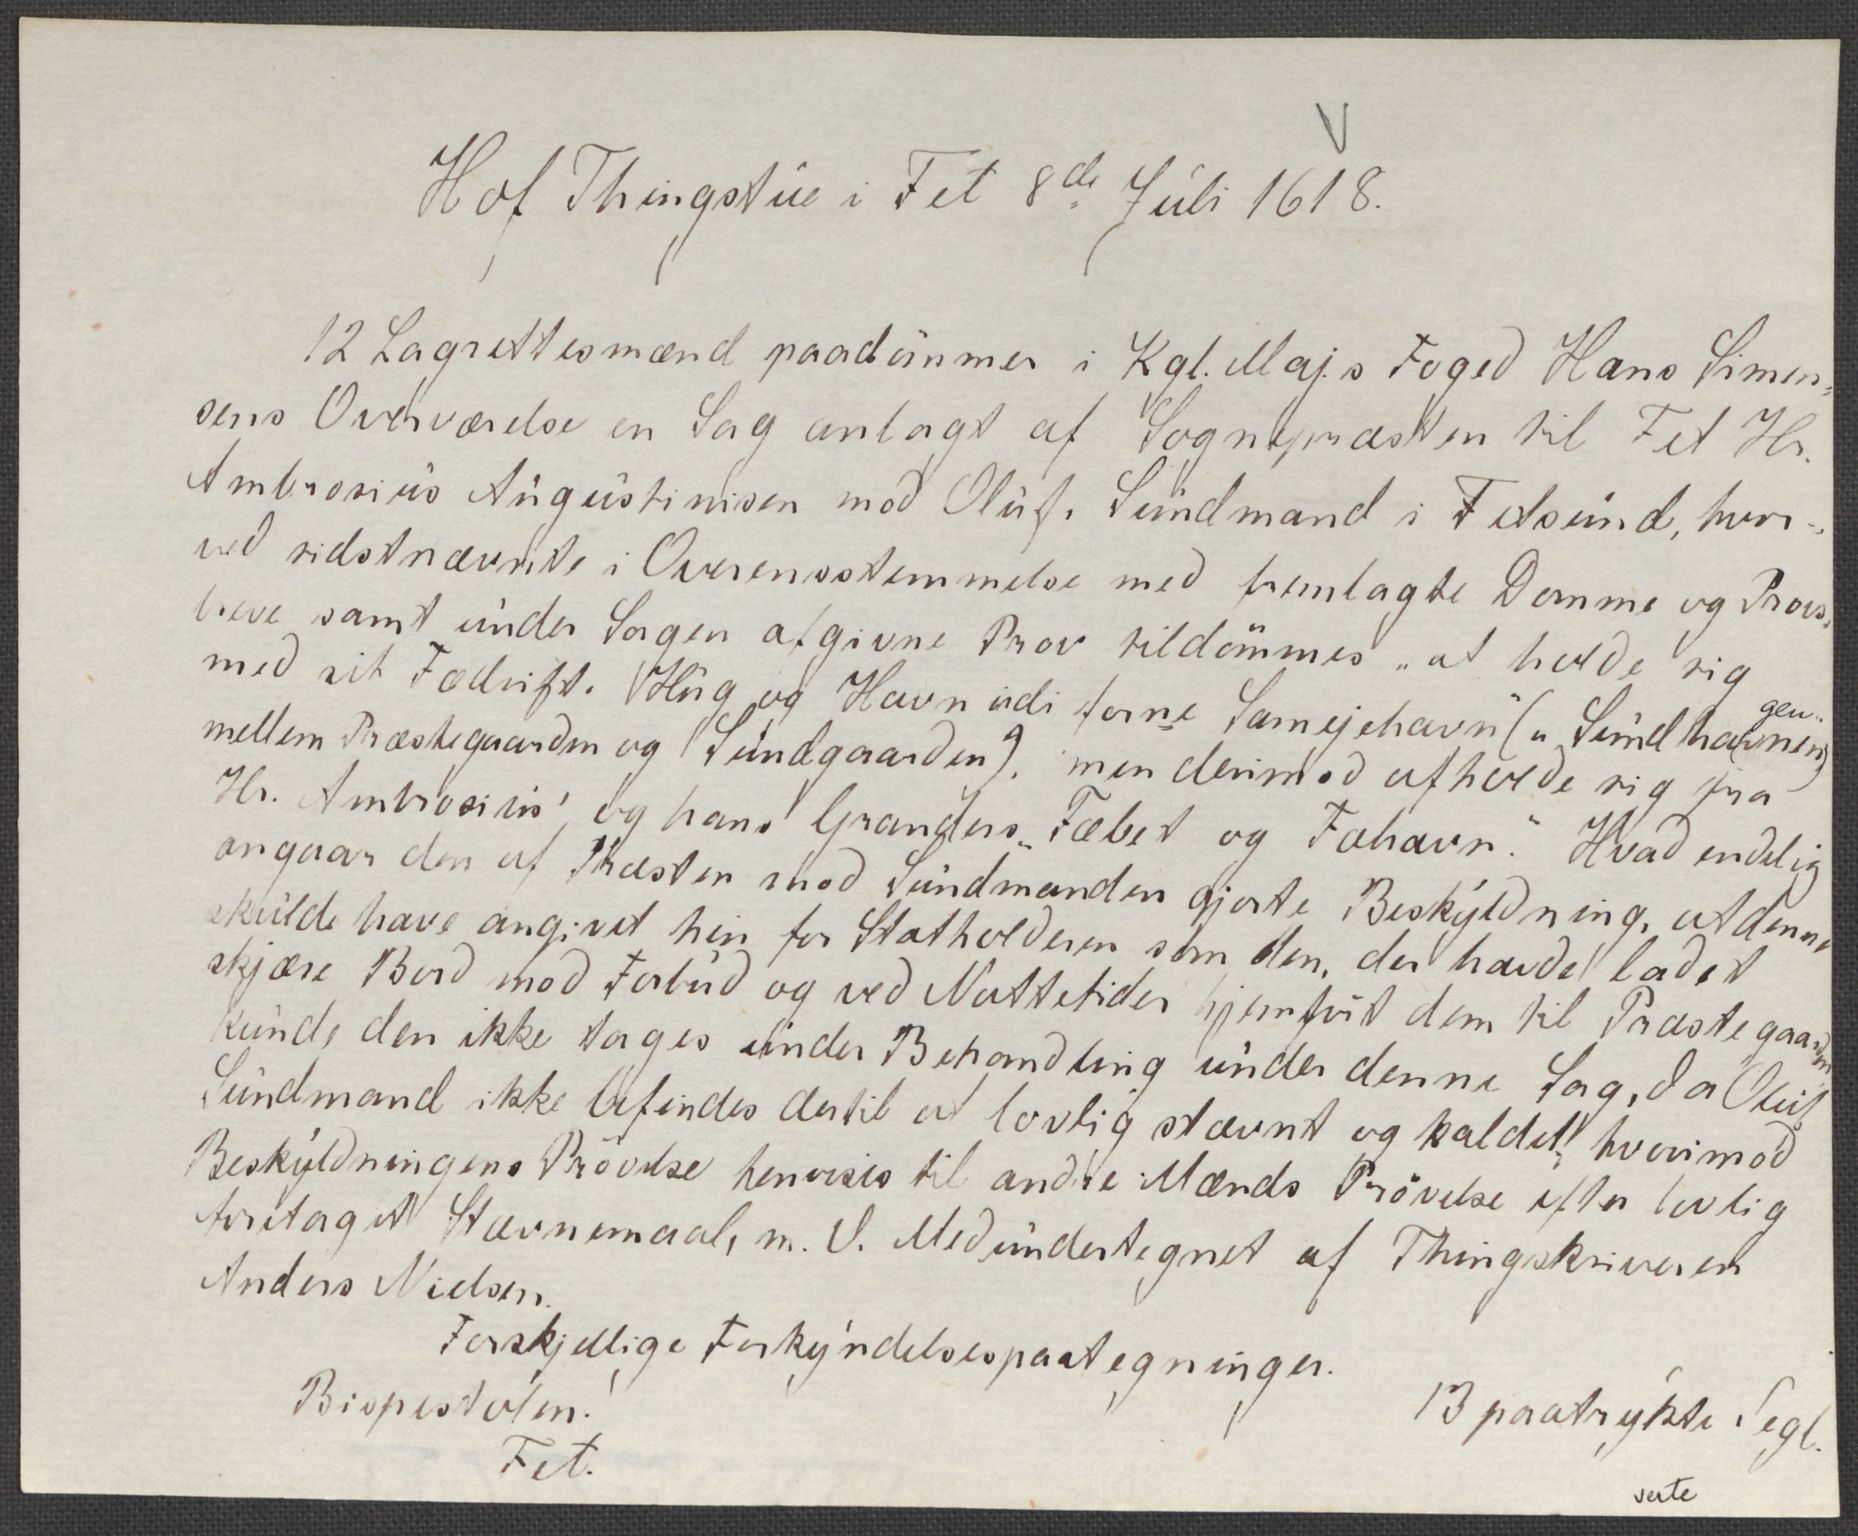 V
Hof Thingstue i Fet 8de Juli 1618.
12 Lagrettesmænd paadömmer i Kgl. Maj.s Foged Hans Simen-
sens Overværelse en Sag anlagt af Sognepræsten til Fet Hr.
Ambrosius Augustinisen mod Oluf Sundmand i Fetsund, hvor-
ved sidstnævnte i Overensstemmelse med fremlagte Domme og Provs-
breve samt under Sagen afgivne Prov tildömmes „at holde sig
med sit Fædrift, Hug og Havn udi forne Samejehavn" („Sundhavnen"
mellem Præstegaarden og Sundgaarden), men derimod afholde sig fra
Hr. Ambrosius' og hans Granders „Fæbet og Fæhavn." Hvad endelig
angaar den af Præsten mod Sundmanden gjorte Beskyldning, at denne
skulde have angivet hin for Statholderen som den, der havde ladet
skjære Bord mod Forbud og ved Nattetider hjemfört dem til Præstegaarden
kunde den ikke tages under Behandling under denne Sag, da Oluf
Sundmand ikke befindes dertil at lovlig stævnt og kaldet", hvorimod
Beskyldningens Prövelse henvises til andre Mænds Prövelse efter lovlig
foretaget Stævnemaal, m. V. Medundertegnet af Thingskriveren
Anders Nielsen.
Forskjellige Forkyndelsespaategninger.
Bispestolen.
13 paatrykte Segl.
Fet.
verte